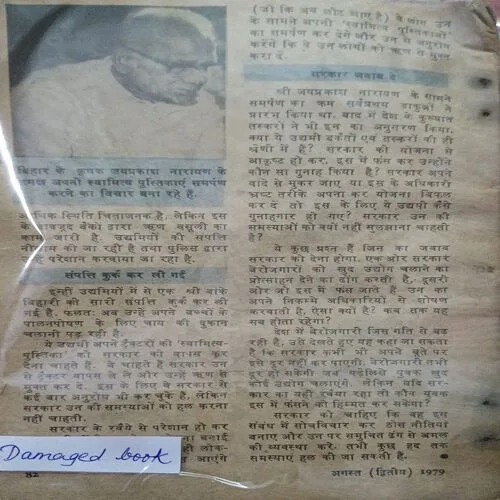 बिहार के कृषक जयप्रकाश नारायण के
समक्ष अपनी स्वामित्व पुस्तिकाएं समर्पण
करने का विचार बना रहे हैं.
आर्थिक स्थिति चिंताजनक है, लेकिन इस
के बावजूद बैंकों द्वारा ऋण वसूली का
काम जारी है. उद्यमियों की संपत्ति
नीलाम की जा रही है तथा पुलिस द्वारा
उन्हें परेशान करवाया जा रहा है.
संपत्ति कुर्क कर ली गई
इन्हीं उद्यमियों में से एक श्री बांके
बिहारी की सारी संपत्ति कुर्क कर ली
गई है. फलतः अब उन्हें अपने बच्चों के
पालनपोषण के लिए चाय की दुकान
चलानी पड़ रही है.
ये उद्यमी अपने ट्रैक्टरों की 'स्वामित्व-
पुस्तिका' को सरकार को वापस कर
देना चाहते हैं. वे चाहते हैं सरकार उन
से ट्रैक्टर वापस ले ले और उन्हें ऋण से
मुक्त कर दे. इस के लिए वे सरकार से
कई बार अनुरोध भी कर चुके हैं, लेकिन
सरकार उन की समस्याओं को हल करना
नहीं चाहती.
सरकार के रवैये से परेशान हो कर
बनाई
लोक-
आएंगे
Damaged book
82
(जो कि अब लौट आए हैं) वे लोग उन
के सामने अपनी 'स्वामित्व पुस्तिकाओं'
का समर्पण कर देंगे और उन से अनुरोध
करेंगे कि वे उन लोगों को ऋण से मुक्त
करा दें.
सरकार जवाब दे
श्री जयप्रकाश नारायण के सामने
समर्पण का क्रम सर्वप्रथम डाकुओं ने
प्रारंभ किया था. बाद में देश के कुख्यात
तस्करों ने भी इन का अनुसरण किया.
क्या ये उद्यमी डकैतों एवं तस्करों की ही
श्रेणी में हैं? सरकार की योजना से
आकृष्ट हो कर, इस में फंस कर उन्होंने
कौन सा गुनाह किया है? सरकार अपने
वादे से मुकर जाए या इस के अधिकारी
भ्रष्ट तरीके अपना कर योजना विफल
कर दें तो इस के लिए ये उद्यमी कैसे
गुनाहगार हो गए? सरकार उन की
समस्याओं को क्यों नहीं सुलझाना चाहती
है?
ये कुछ प्रश्न हैं जिन का जवाब
सरकार को देना होगा. एक ओर सरकार
बेरोजगारों को खुद उद्योग चलाने का
प्रोत्साहन देने का ढोंग करती है, दूसरी
ओर जो इस में फंस जाते हैं उन का
अपने निकम्मे अधिकारियों से शोषण
करवाती है, ऐसा क्यों है? कब तक यह
सब होता रहेगा?
देश में बेरोजगारी जिस गति से बढ़
रही है, उसे देखते हुए यह कहा जा सकता
है कि सरकार कभी भी अपने बूते पर
इसे दूर नहीं कर पाएगी. बेरोजगारी तभी
दूर हो सकेगी जब पढ़ेलिखे युवक खुद
कोई उद्योग चलाएंगे. लेकिन यदि सर-
कार का यही रवैया रहा तो कौन युवक
इस में फंसने की हिम्मत कर सकेगा?
सरकार को चाहिए कि वह इस
संबंध में सोचविचार कर ठोस नीतियां
बनाए और उन पर समुचित ढंग से अमल
की व्यवस्था करे. तभी कुछ हद तक
समस्याएं हल की जा सकती हैं.
अगस्त (द्वितीय) 1979